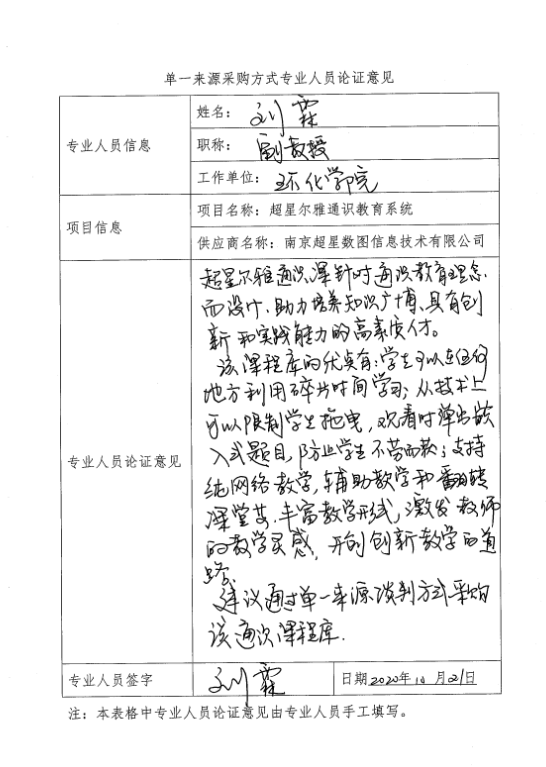 单一来源采购方式专业人员论证意见
专业人员信息
姓名：刘霖
职称：副教授
工作单位：环化学院
项目信息
项目名称：超星尔雅通识教育系统
供应商名称：南京超星数图信息技术有限公司
专业人员论证意见
超星尔雅通识课针对通识教育理念
而设计，助力培养知识广博、具有创
新和实践能力的高素质人才。
该课程库的优点有：学生可以在任何
地方利用碎片时间学习；从技术上
可以限制学生拖曳，观看时弹出嵌
入式题目，防止学生不劳而获；支持
纯网络教学，辅助教学和翻转
课堂等，丰富教学形式，激发教师
的教学灵感，开创创新教学的道
路。
建议通过单一来源谈判方式采购
该通识课程库.
专业人员签字 刘霖 日期2020年10月21日
注：本表格中专业人员论证意见由专业人员手工填写。